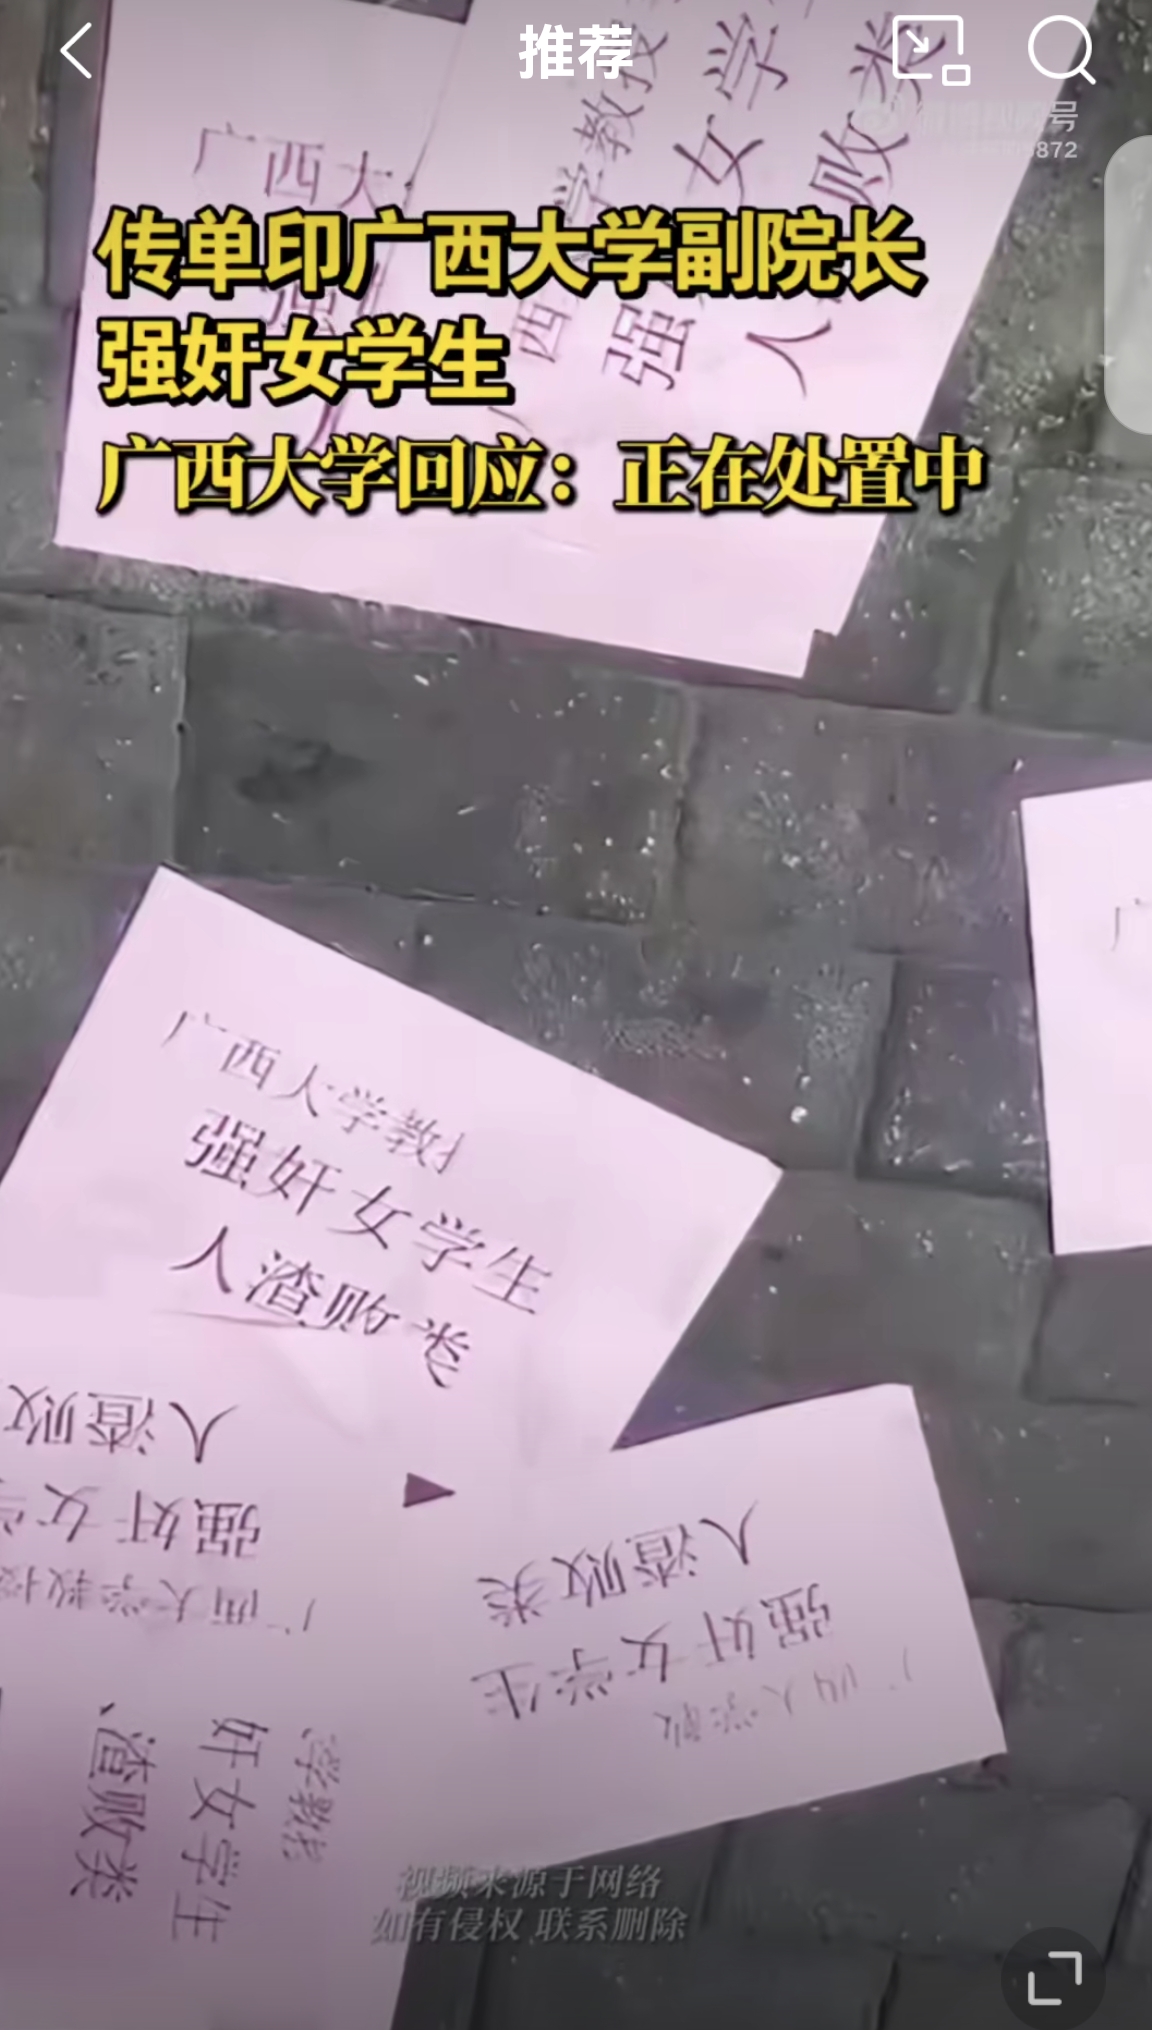 推荐
传单印广西大学副院长
强奸女学生
广西大学回应：正在处置中
872
广西大
强
西 学教授
强 女学
人 败类
广西大学教
强奸女学生
人渣败类
人渣败
强奸女学
广西大学教授
人渣败类
强奸女学生
广西大学教
学教
奸女学生
渣败类
视频来源于网络
如有侵权 联系删除